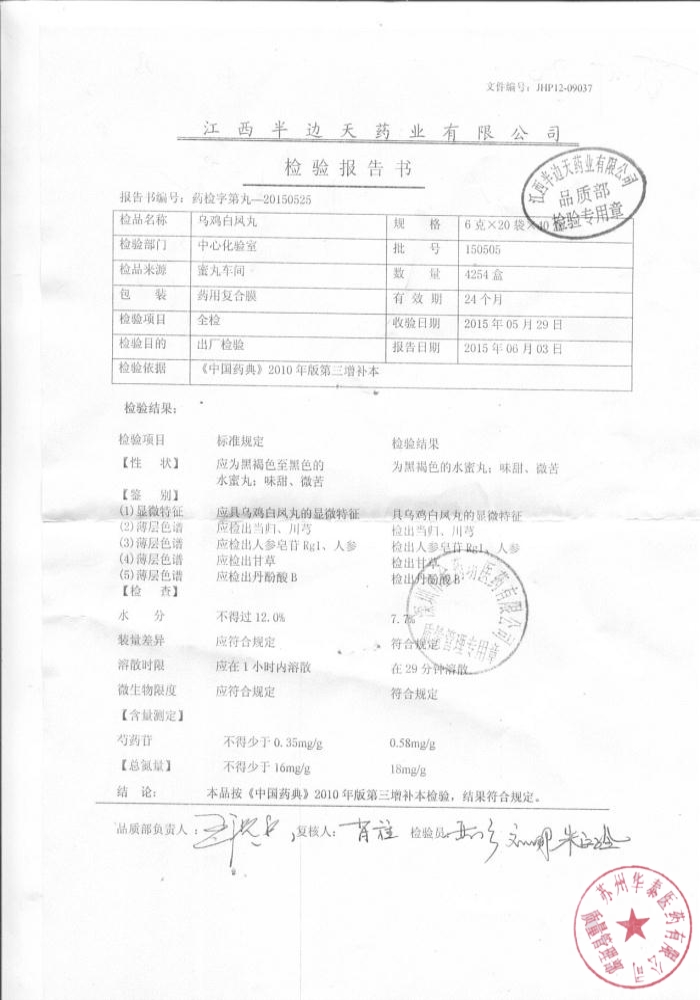 文件编号：JHP12-09037
江西半边天药业有限公司
检验报告书
江西半边天药业有限公司
品质部
检验专用章
报告书编号：药检字第丸—20150525
检品名称 乌鸡白凤丸 规 格 6克×20袋×10
检验部门 中心化验室 批 号 150505
检品来源 蜜丸车间 数 量 4254盒
包 装 药用复合膜 有 效 期 24个月
检验项目 全检 收验日期 2015年05月29日
检验目的 出厂检验 报告日期 2015年06月03日
检验依据 《中国药典》2010年版第三增补本
检验结果：
检验项目 标准规定 检验结果
【性 状】 应为黑褐色至黑色的 为黑褐色的水蜜丸；味甜、微苦
水蜜丸；味甜、微苦
【鉴 别】
(1)显微特征 应具乌鸡白凤丸的显微特征 具乌鸡白凤丸的显微特征
(2)薄层色谱 应检出当归、川芎 检出当归、川芎
(3)薄层色谱 应检出人参皂苷Rg1、人参 检出人参皂苷Rg1、人参
(4)薄层色谱 应检出甘草 检出甘草
(5)薄层色谱 应检出丹酚酸B 检出丹酚酸B
【检 查】
水 分 不得过12.0% 7.7%
装量差异 应符合规定 符合规定
溶散时限 应在1小时内溶散 在29分钟溶散
微生物限度 应符合规定 符合规定
医药有限公司
质量管理专用章
【含量测定】
芍药苷 不得少于0.35mg/g 0.58mg/g
【总氮量】 不得少于16mg/g 18mg/g
结 论： 本品按《中国药典》2010年版第三增补本检验，结果符合规定。
品质部负责人： 复核人： 检验员
苏州华泰医药有限公司
质量管理部